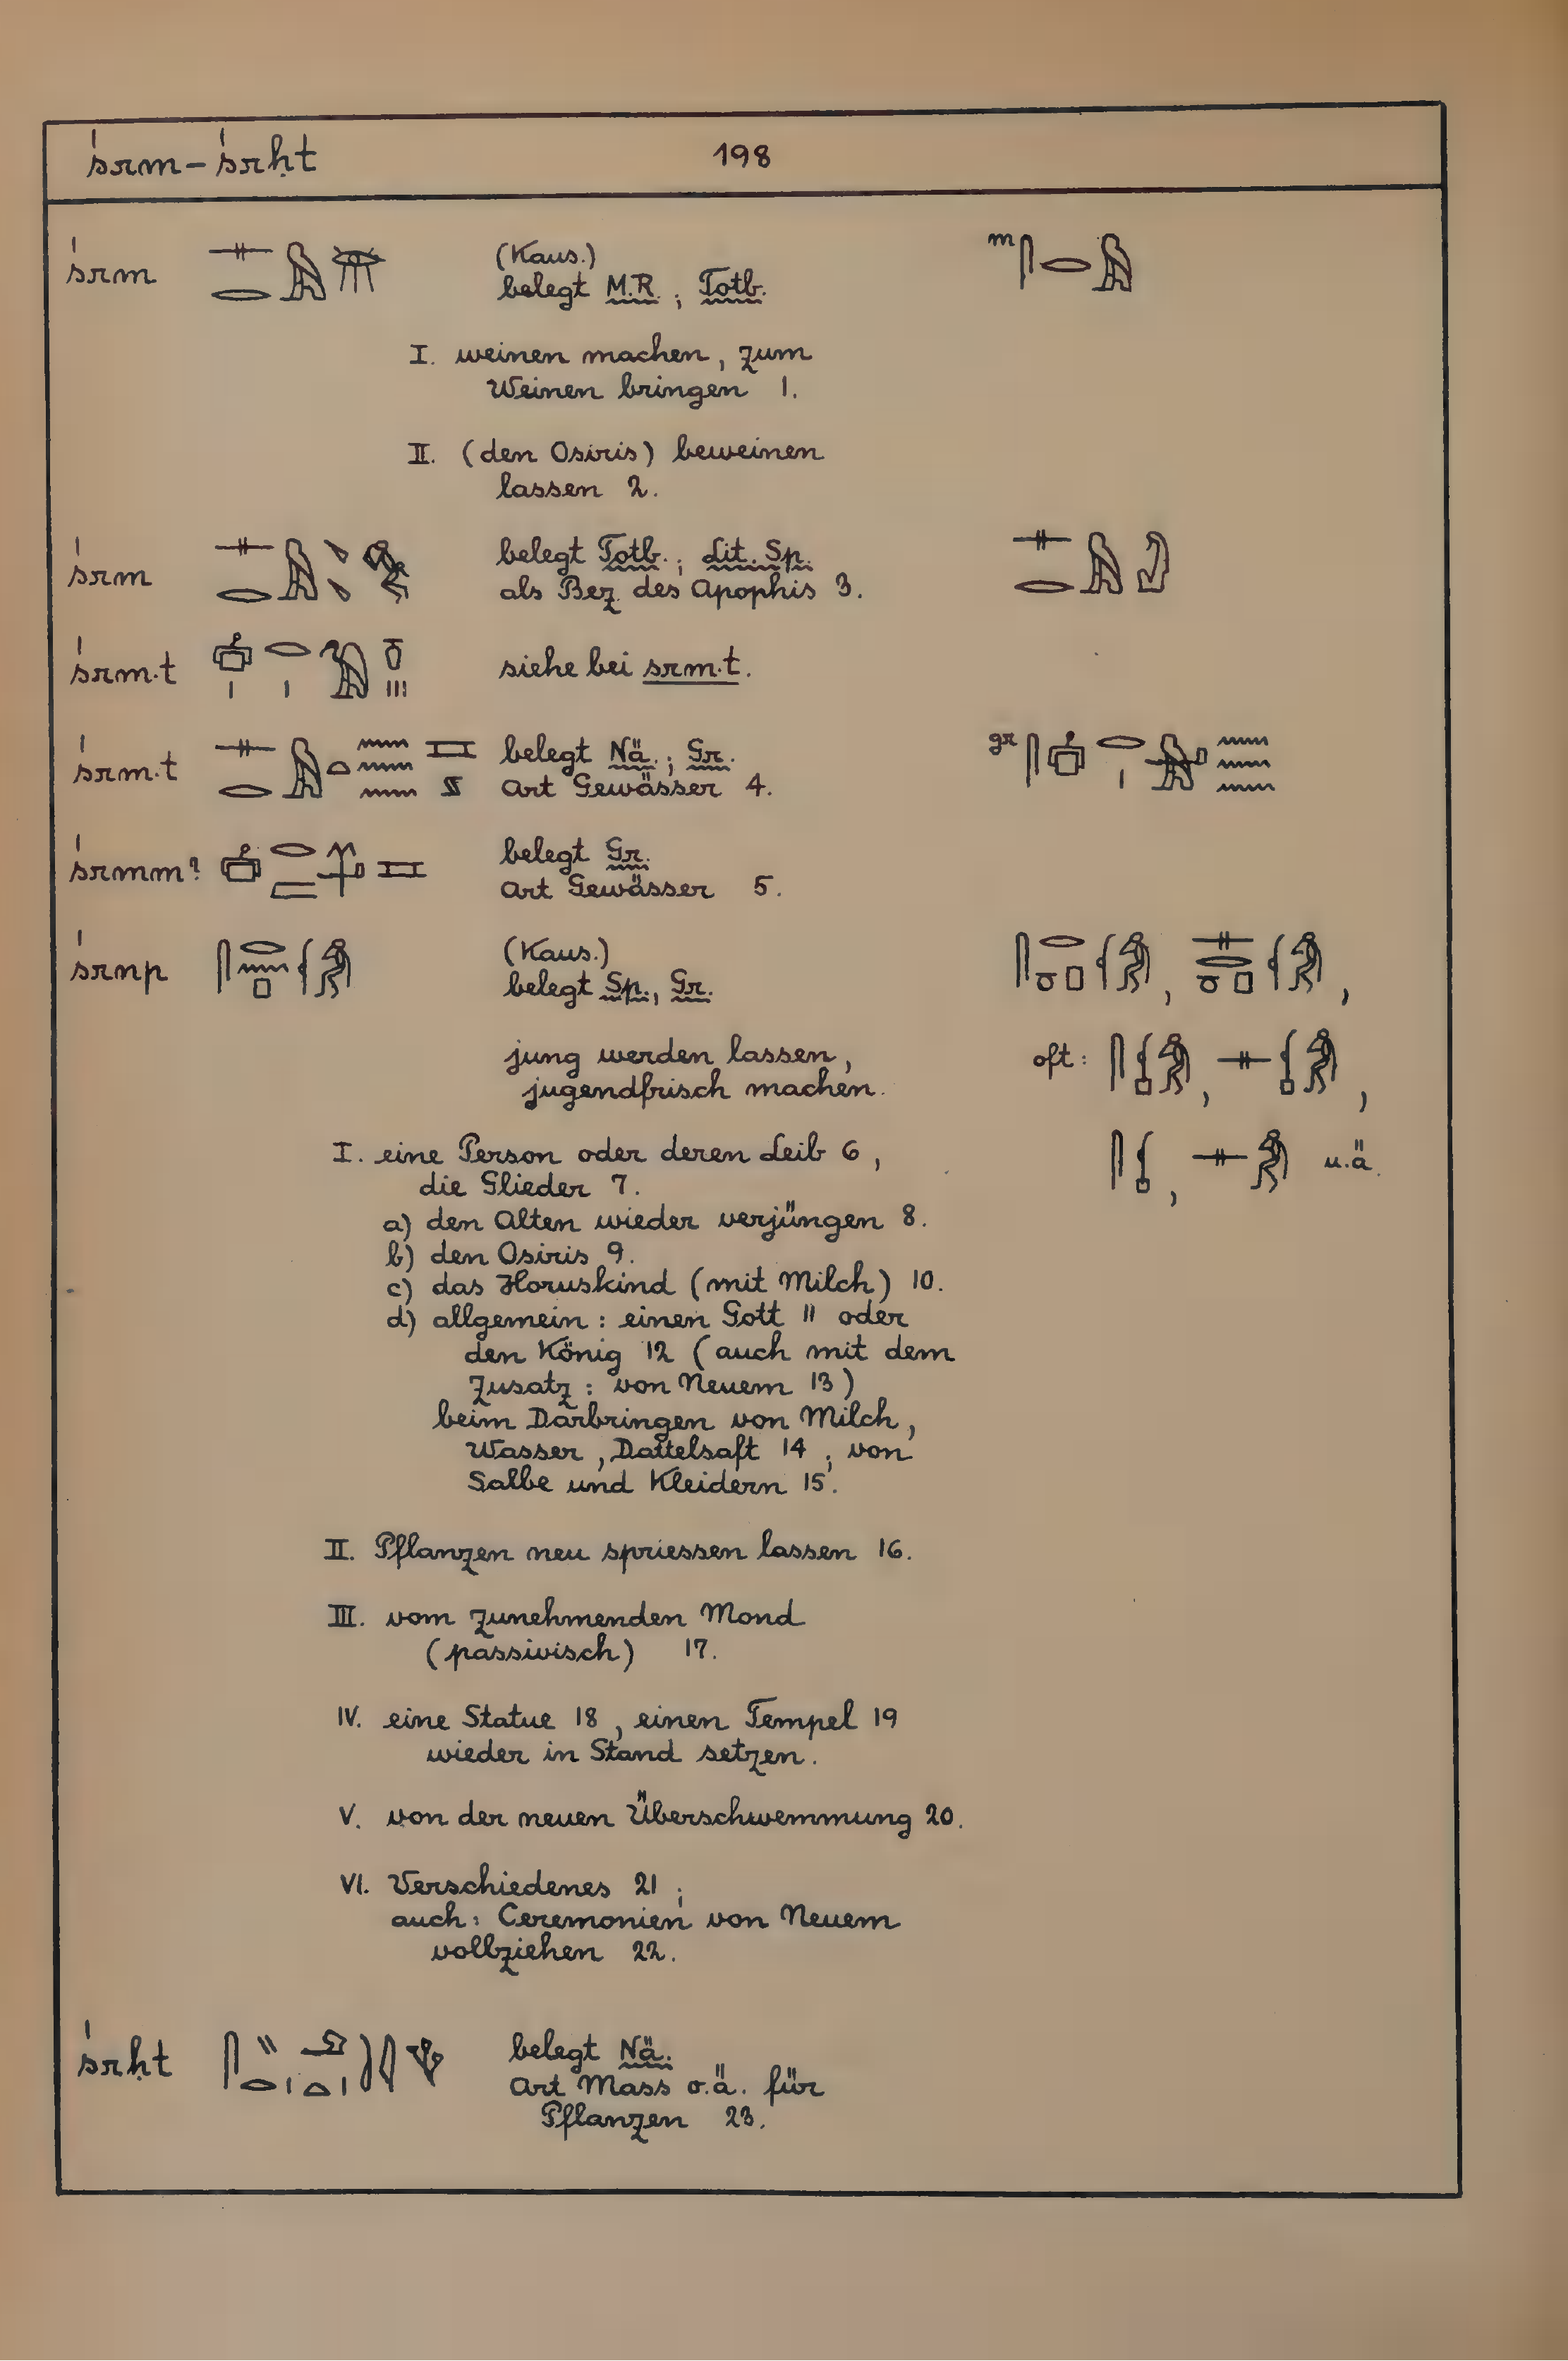 śrm – śrḥt 198
śrm (Kaus.) m
belegt M.R.; Totb.
I. weinen machen, zum
Weinen bringen 1.
II. (den Osiris) beweinen
lassen 2.
śrm belegt Totb.; Lit. Sp.
als Bez. des Apophis 3.
śrm·t siehe bei srm·t.
śrm·t belegt Nä.; Gr. gr
Art Gewässer 4.
śrmm? belegt Gr.
Art Gewässer 5.
śrnp (Kaus.)
belegt Sp., Gr.
jung werden lassen, oft:
jugendfrisch machen.
I. eine Person oder deren Leib 6, u.ä.
die Glieder 7.
a) den Alten wieder verjüngen 8.
b) den Osiris 9.
c) das Horuskind (mit Milch) 10.
d) allgemein: einen Gott 11 oder
den König 12 (auch mit dem
Zusatz: von Neuem 13)
beim Darbringen von Milch,
Wasser, Dattelsaft 14; von
Salbe und Kleidern 15.
II. Pflanzen neu spriessen lassen 16.
III. vom zunehmenden Mond
(passivisch) 17.
IV. eine Statue 18, einen Tempel 19
wieder in Stand setzen.
V. von der neuen Überschwemmung 20.
VI. Verschiedenes 21;
auch: Ceremonien von Neuem
vollziehen 22.
śrḥt belegt Nä.
Art Mass o.ä. für
Pflanzen 23.